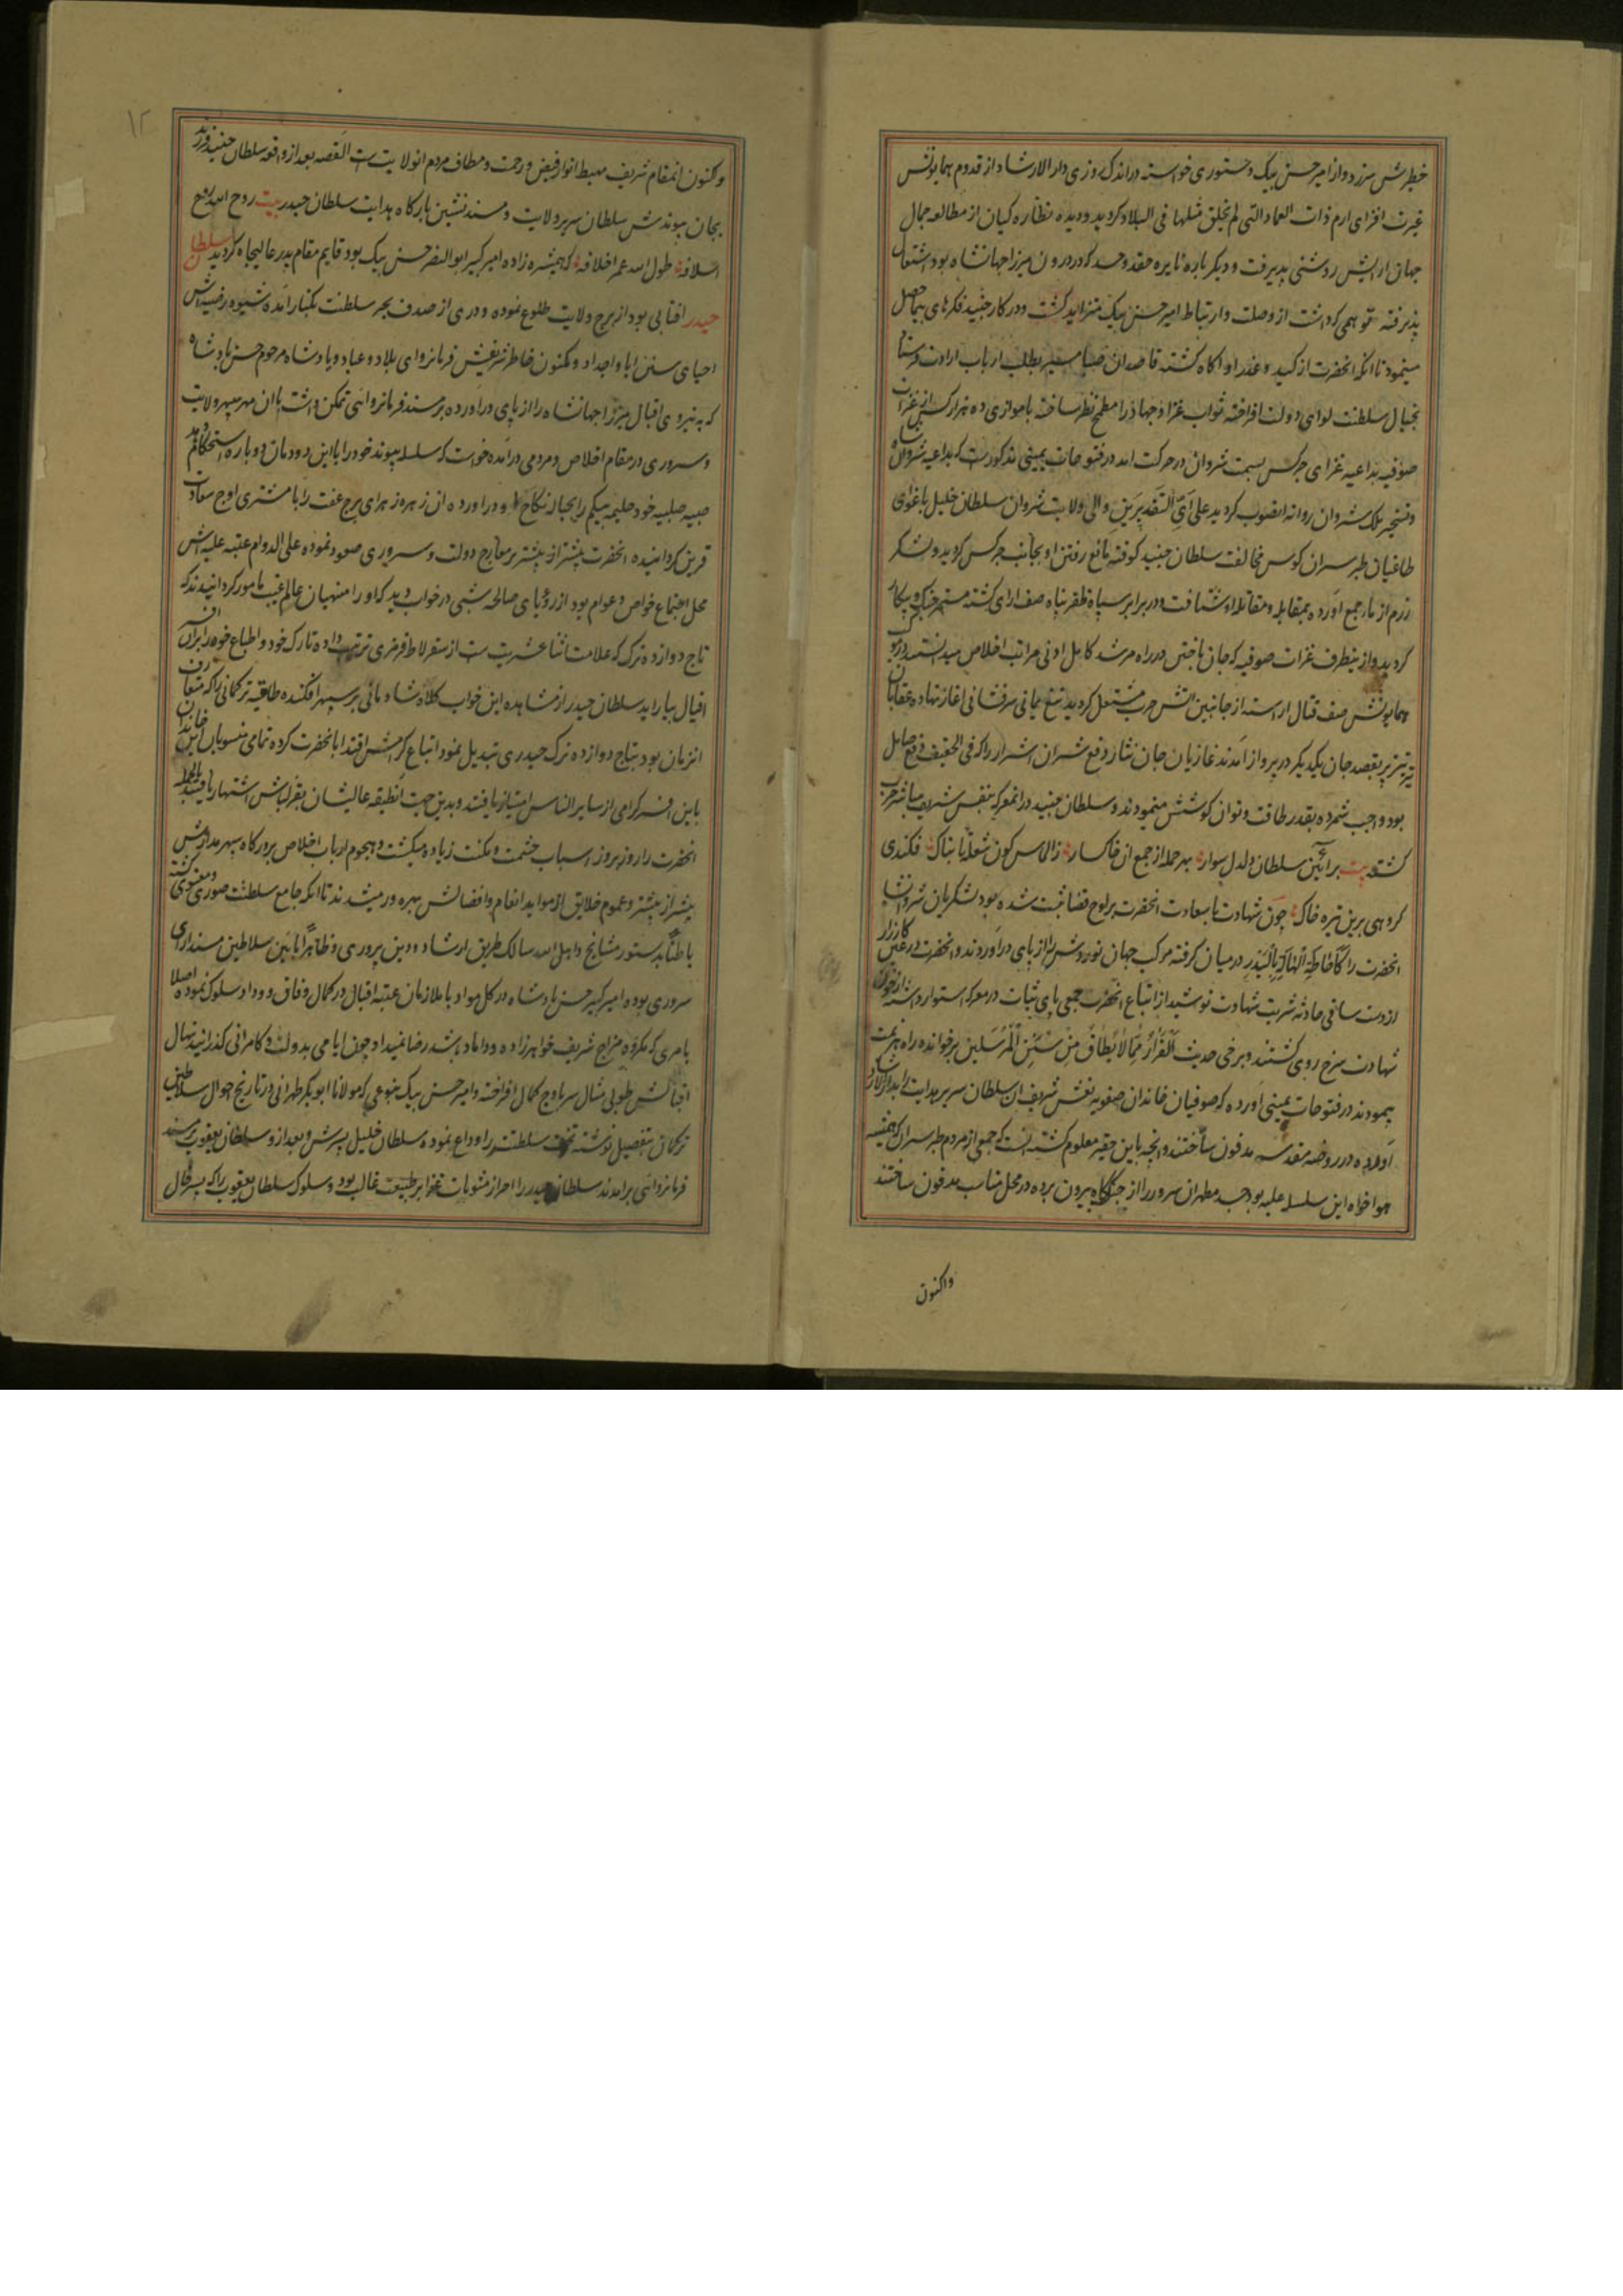 خطیرش سرزد و از امیر حسن بیک دستوری خواسته در اندک روزی دار الارشاد از قدوم همایونش
غیرت افزای ارم ذات العماد التی لم یخلق مثلها فی البلاد کردید و دیده نظاره کیان از مطالعه جمال
جهان ارایش روشنی پذیرفت و دیکر باره نایره حقد و حسد که در درون میرزا جهانشاه بود اشتعال
پذیرفته توهمی که داشت از وصلت و ارتباط امیر حسن بیک متزاید کشت و در کار جنید فکرهای بیحاصل
مینمود تا انکه انحضرت از کید و غدر او اکاه کشته قاصدان صبا مسیر بطلب ارباب ارادت فرستاد
بخیال سلطنت لوای دولت افراخته ثواب غزا و جهاد را مطمح نظر ساخته با موازی ده هزار کس از غزات
صوفیه بداعیه غزای جرکس بسمت شروان در حرکت امد در فتوحات یمینی مذکورست که بداعیه شروان
و تسخیر ملک شروان روانه انصوب کردید علی ای التقدیرین والی ولایت شروان سلطان خلیل باغوای
طاغیان طبرسران کوس مخالفت سلطان جنید کوفته مانع رفتن او بجانب جرکس کردید و لشکر
رزم ازما جمع اورده بمقابله و مقاتله او شتافت و در برابر سپاه ظفر پناه صف ارای کشته مستعد جنک و پیکار
کردید و از ینطرف غزات صوفیه که جان باختن در راه مرشد کامل ادنی مراتب اخلاص میدانستند در رکاب
همایونش صف قتال اراسته از جانبین اتش حرب مشتعل کردید تیغ یمانی سرفشانی اغاز نهاده عقابان
تیز پر بقصد جان یکدیکر در پرواز امدند غازیان جان نثار دفع شر ان اشرار را که فی الحقیقه دفع صایل
بود واجب شمرده بقدر طاقت و توان کوشش مینمودند و سلطان جنید در انمعرکه بنفس شریف مباشر حرب
کشته بیت بر آئین سلطان دلدل سوار بهر حمله از جمع ان خاکسار ز الماس کون شعلهٔ تابناک فکندی
کروهی برین تیره خاک چون شهادت با سعادت انحضرت بر لوح قضا ثبت شده بود لشکریان شروانشاه
انحضرت را کاحاطة الهالة بالبدر در میان کرفته مرکب جهان نوردش را از پای در آوردند و انحضرت در عین کارزار
از دست ساقی حادثه شربت شهادت نوشید از اتباع انحضرت جمعی پای ثبات در معرکه استوار داشته از خون
شهادت سرخ روی کشتند و برخی حدیث الفرار مما لا یطاق من سنن المرسلین بر خوانده راه هزیمت
پیمودند در فتوحات یمینی آورده که صوفیان خاندان صفویه نعش شریف ان سلطان سریر هدایت را بدار الارشاد
آورده در روضه مقدسه مدفون ساختند و انچه باین حقیر معلوم کشته انست که جمعی از مردم طبرسران که همیشه
هواخواه این سلسله علیه بود جسد مطهر ان سرور را از جنکگاه بیرون برده در محل مناسب مدفون ساختند
واکنون
۱۲
و کنون انمقام شریف مهبط انوار فیض و رحمت و مطاف مردم انولایت ست القصه بعد از واقعه سلطان جنید فرزند
بجان پیوندش سلطان سریر ولایت و مسند نشین بارکاه هدایت سلطان حیدر بیت روح الله روح
اسلافه طول الله عمر اخلافه که همشیره زاده امیر کبیر ابو النصر حسن بیک بود قایم مقام پدر عالیجاه کردید سلطان
حیدر افتابی بود از برج ولایت طلوع نموده و دری از صدف بحر سلطنت بکنار امده شیوه رضیه اش
احیای سنن ابا و اجداد و مکنون خاطر شریفش فرمانروای بلاد و عباد و پادشاه مرحوم حسن پادشاه
که به نیروی اقبال میرزا جهانشاه را از پای در آورده بر مسند فرمانروائی تمکن داشت با ان مهر سپهر ولایت
و سروری در مقام اخلاص و مردمی درامده خواست که سلسله پیوند خود را با این دودمان دوباره استحکام دهد
صبیه صلبیه خود حلیمه بیکم را بحباله نکاح او در اورده ان زهره زهرای برج عفت را با مشتری اوج سعادت
قرین کردانیده انحضرت پیشتر از پیشتر بر معارج دولت و سروری صعود نموده علی الدوام عتبه علیه اش
محل اجتماع خواص و عوام بود از رؤیای صالحه شبی در خواب دید که او را منهیان عالم غیب مامور کردانیدند که
تاج دوازده ترک که علامت اثنا عشریت ست از سقرلاط قرمزی ترتیب داده تارک خود و اطباع خود را بدان افسر
اقبال بیاراید سلطان حیدر از مشاهده این خواب کلاه شادمانی بر سپهر افکنده طاقیه ترکمانی را که متعارف
انزمان بود بتاج دوازده ترک حیدری تبدیل نمود اتباع کرامش اقتدا بانحضرت کرده تمامی منسوبان این خاندان
باین افسر کرامی از سایر الناس امتیاز یافتند و بدین جهت انطبقه عالیشان بقزلباش اشتهار یافتند بالجمله
انحضرت را روز بروز اسباب حشمت و مکنت زیاده میکشت و هجوم ارباب اخلاص بر درکاه سپهر مدارش
پیشتر از پیشتر و عموم خلایق از موایده انعام و افضالش بهره ور میشدند تا انکه جامع سلطنت صوری و معنوی کشته
باطناً بدستور مشایخ و اهل الله سالک طریق ارشاد و دین پروری و ظاهراً بائین سلاطین مسند ارای
سروری بوده امیر کبیر حسن پادشاه در کل مواد با ملازمان عتبه اقبال در کمال وفاق و وداد سلوک نموده اصلا
بامری که مکروه مزاج شریف خواهرزاده و داماد باشد رضا نمیداد چون ایامی بدولت و کامرانی کذرانید نهال
اقبالش طوبی مثال سر باوج کمال افراخته و امیر حسن بیک بنوعی که مولانا ابو بکر طهرانی در تاریخ احوال سلاطین
ترکمان بتفصیل نوشته تخت سلطنت را وداع نموده سلطان خلیل پسرش و بعد از و سلطان یعقوب بر مسند
فرمانروائی برامدند سلطان حیدر را احراز مثوبات غزا بر طبیعت غالب بود و سلوک سلطان یعقوب را که پسر خال